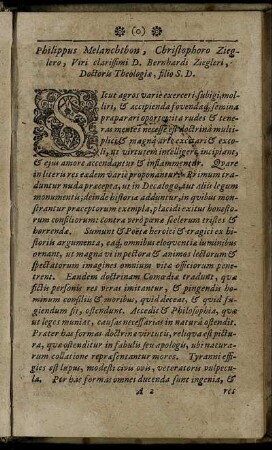 (o)
Philippus Melanchthon, Christophoro Zieg-
lero, Viri clarissimi D. Bernhardi Zigleri,
Doctoris Theologiæ, filio S. D.
SIcut agros variè exerceri, subigi, mol-
liri, & accipienda fovendaq́; semina
præparari oportet: ita rudes & tene-
ras mentes necesse est doctrina multi-
plici & magna arte excitari & exco-
li, ut virtutem intelligere incipiant,
& ejus amore accendantur & inflammentur. Quare
in literis res eædem variè proponantur. Primum tra-
duntur nuda præcepta, ut in Decalogo, aut aliis legum
monumentis; deinde historia adduntur, in quibus mon-
strantur præceptorum exempla, placidi exitus honesto-
rum consiliorum: contra verò pœnæ scelerum tristes &
horrendæ. Sumunt & Poëtæ heroici & tragici ex hi-
storiis argumenta, eaq́; omnibus eloquentiæ luminibus
ornant, ut magna vi in pectora & animos lectorum &
spectatorum imagines omnium vitæ officiorum pene-
trent. Eandem doctrinam Comœdiæ tradunt, quæ
fictis personis res veras imitantur, & pingendis ho-
minum consiliis & moribus, quid deceat, & quid fu-
giendum sit, ostendunt. Accedit & Philosophia, quæ
ut leges muniat, causas necessarias in natura ostendit.
Præter has formas doctrinæ virtutis, reliqua est pictu-
ra, quæ ostenditur in fabulis seu apologis, ubi natura-
rum collatione repræsentantur mores. Tyranni effi-
gies est lupus, modesti civis ovis, veteratoris vulpecu-
la. Per has formas omnes ducenda sunt ingenia, &
A 2 rec